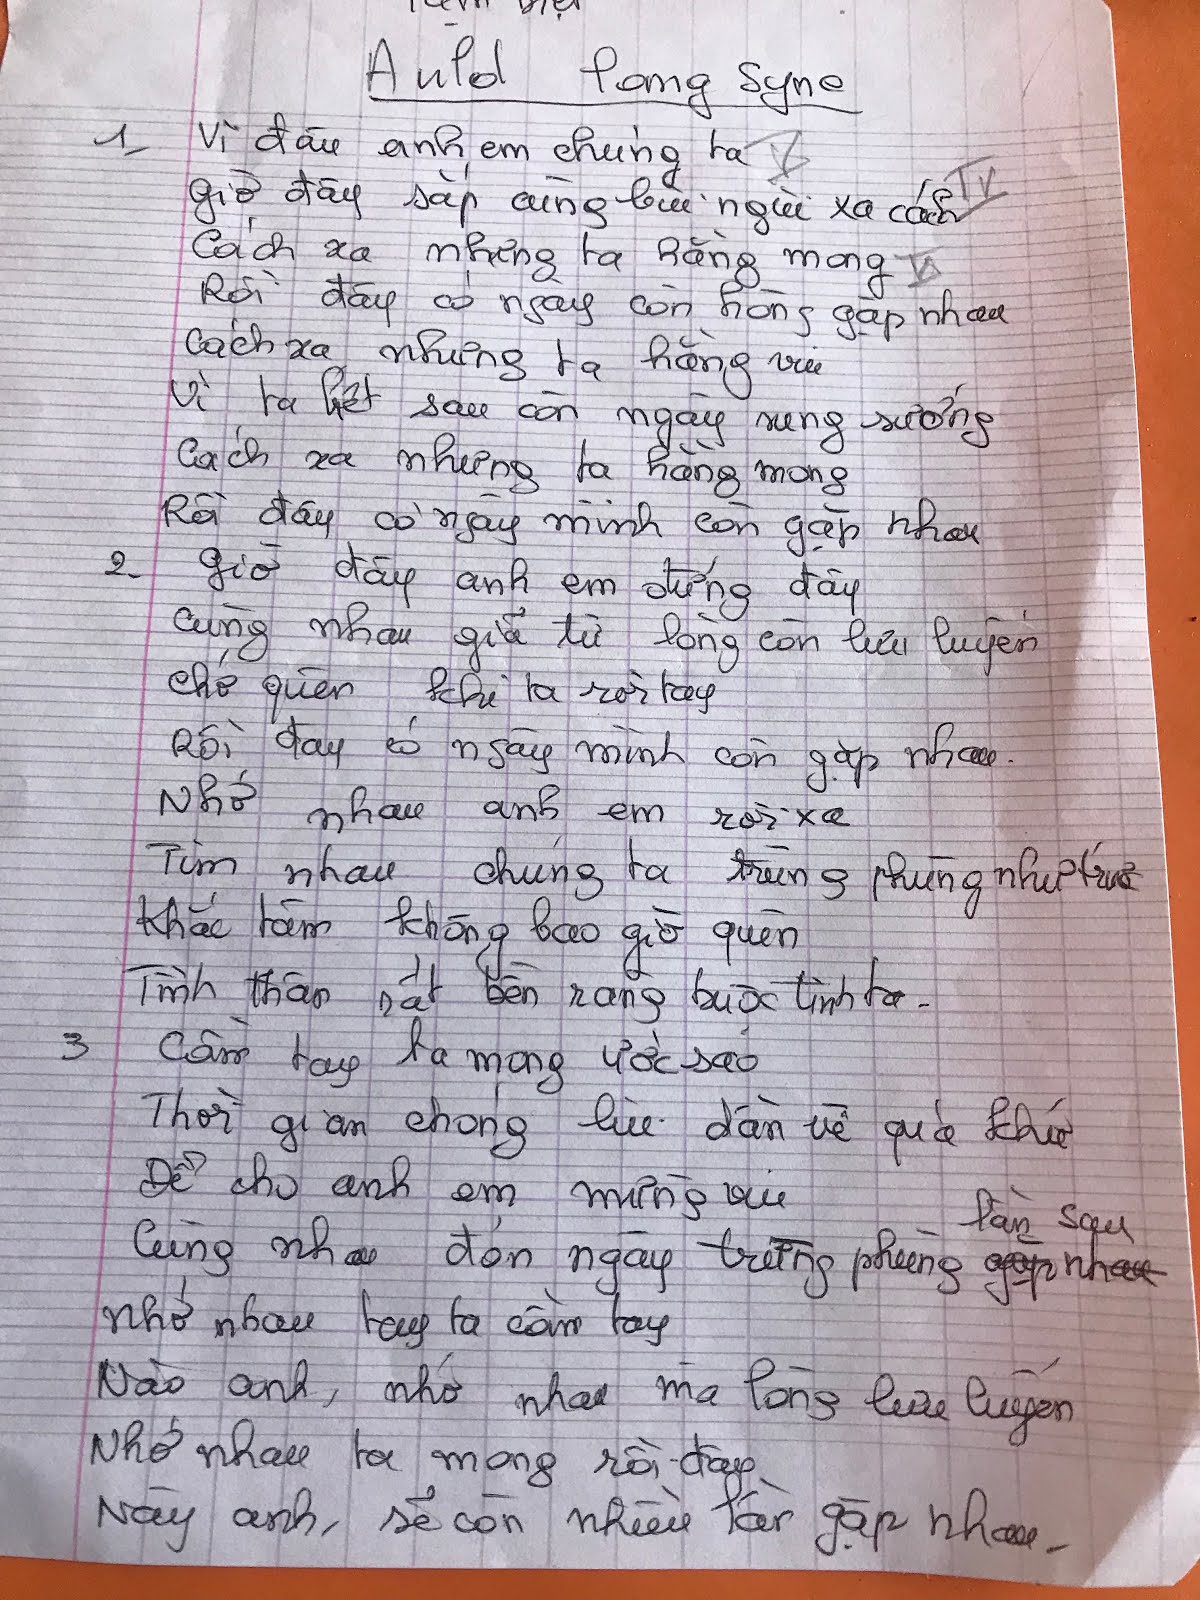 Tạm biệt
Auld lang syne
1_ Vì đâu anh em chúng ta
giờ đây sắp cùng bùi ngùi xa cách IV
Cách xa nhưng ta hằng mong
Rồi đây có ngày còn hòng gặp nhau
Cách xa nhưng ta hằng vui
Vì ta biết sau còn ngày sung sướng
Cách xa nhưng ta hằng mong
Rồi đây có ngày mình còn gặp nhau
2_ giờ đây anh em đứng đây
Cùng nhau giã từ lòng còn lưu luyến
chớ quên khi ta rời tay
Rồi đay có ngày mình còn gặp nhau.
Nhớ nhau anh em rời xa
Tìm nhau chúng ta trùng phùng như trước
Khắc tâm không bao giờ quên
Tình thân rất bền ràng buộc tình ta.
3 Cầm tay ta mong ước sao
Thời gian chóng lùi dần về quá khứ
Để cho anh em mừng vui
lần sau
Cùng nhau đón ngày trùng phùng gặp nhau
nhớ nhau tay ta cầm tay
Nào anh, nhớ nhau mà lòng lưu luyến
Nhớ nhau ta mong rồi đây
Này anh, sẽ còn nhiều lần gặp nhau.